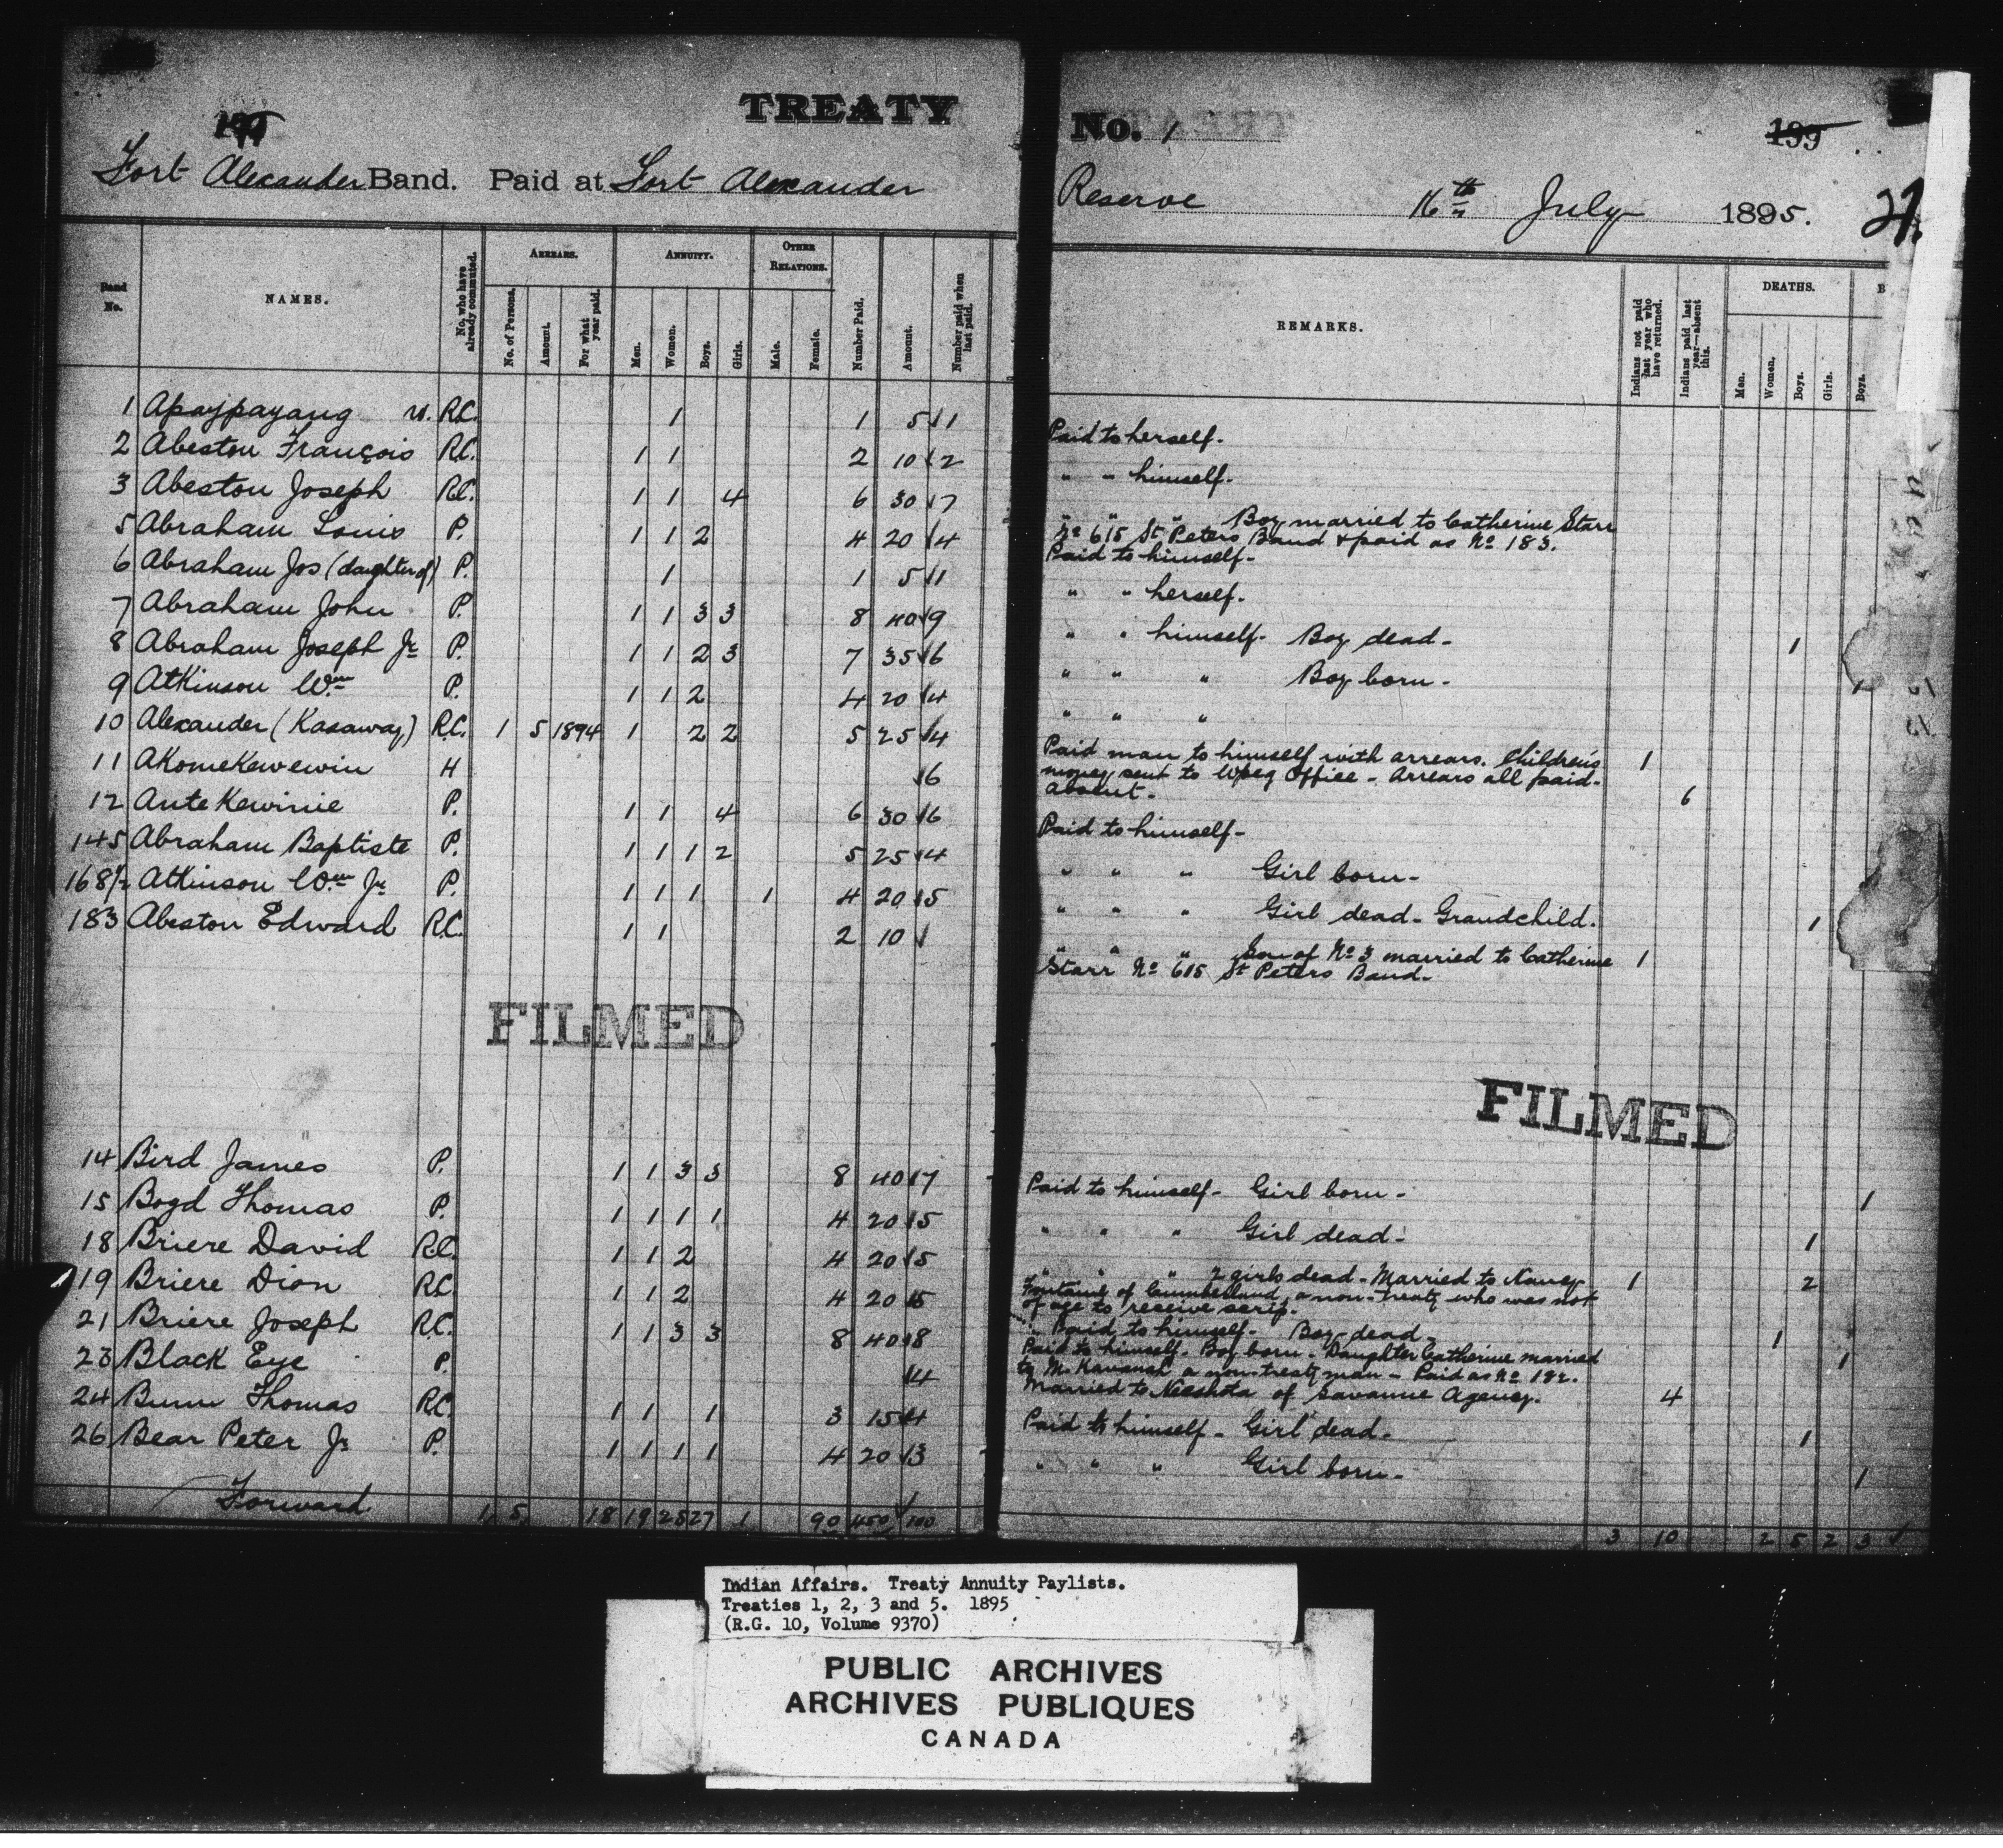 TREATY
Fort Alexander Band. Paid at Fort Alexander
Band No.
NAMES.
No. who have already commuted.
ARREARS.
No. of Persons.
Amount.
For what year paid.
ANNUITY.
Men.
Women.
Boys.
Girls.
OTHER RELATIONS.
Male.
Female.
Number Paid.
Amount.
Number paid when last paid.
1 Apaypayang w. R.C. 1 1 5 1
2 Abeston François R.C. 1 1 2 10 2
3 Abeston Joseph R.C. 1 1 4 6 30 7
5 Abraham Louis P. 1 1 2 4 20 4
6 Abraham Jos (daughter of) P. 1 1 5 1
7 Abraham John P. 1 1 3 3 8 40 9
8 Abraham Joseph Jr P. 1 1 2 3 7 35 6
9 Atkinson Wm P. 1 1 2 4 20 4
10 Alexander (Kasaway) R.C. 1 5 1894 1 2 2 5 25 4
11 Akomekewewin H 6
12 Antekewinie P. 1 1 4 6 30 6
145 Abraham Baptiste P. 1 1 1 2 5 25 4
168½ Atkinson Wm Jr P. 1 1 1 1 4 20 5
183 Abeston Edward R.C. 1 1 2 10
FILMED
14 Bird James P. 1 1 3 3 8 40 7
15 Boyd Thomas P. 1 1 1 1 4 20 5
18 Briere David R.C. 1 1 2 4 20 5
19 Briere Dion R.C. 1 1 2 4 20 5
21 Briere Joseph R.C. 1 1 3 3 8 40 8
23 Black Eye P. 4
24 Bunn Thomas R.C. 1 1 1 3 15 4
26 Bear Peter Jr P. 1 1 1 1 4 20 3
Forward 1 5 18 19 25 27 1 90 450 100
No. 1
199
Reserve 16th July 1895.
27.
REMARKS.
Indians not paid last year who have returned.
Indians paid last year—absent this.
DEATHS.
Men.
Women.
Boys.
Girls.
B
Boys.
Paid to herself.
" " himself.
" " " Boy married to Catherine Starr
No 615 St Peters Band & paid as No 183.
Paid to himself-
" " herself.
" " himself- Boy dead- 1
" " " Boy born- 1
" " "
Paid man to himself with arrears. Children's 1
money sent to Wpeg Office - Arrears all paid-
Absent- 6
Paid to himself-
" " " Girl born-
" " " Girl dead- Grandchild. 1
" " " Son of No 3 married to Catherine 1
Starr No 615 St Peters Band-
FILMED
Paid to himself- Girl born- 1
" " " Girl dead- 1
" " " 2 girls dead- Married to Nancy 1 2
Fontaine of Cumberland, a non-treaty who was not
of age to receive scrip.
Paid to himself- Boy dead- 1
Paid to himself- Boy born- Daughter Catherine married 1
to M. Kavanah a non-treaty man - Paid as No 182.
Married to Neeshota of Savanne Agency. 4
Paid to himself- Girl dead- 1
" " " Girl born- 1
3 10 2 5 2 3
Indian Affairs. Treaty Annuity Paylists.
Treaties 1, 2, 3 and 5. 1895
(R.G. 10, Volume 9370)
PUBLIC ARCHIVES
ARCHIVES PUBLIQUES
CANADA